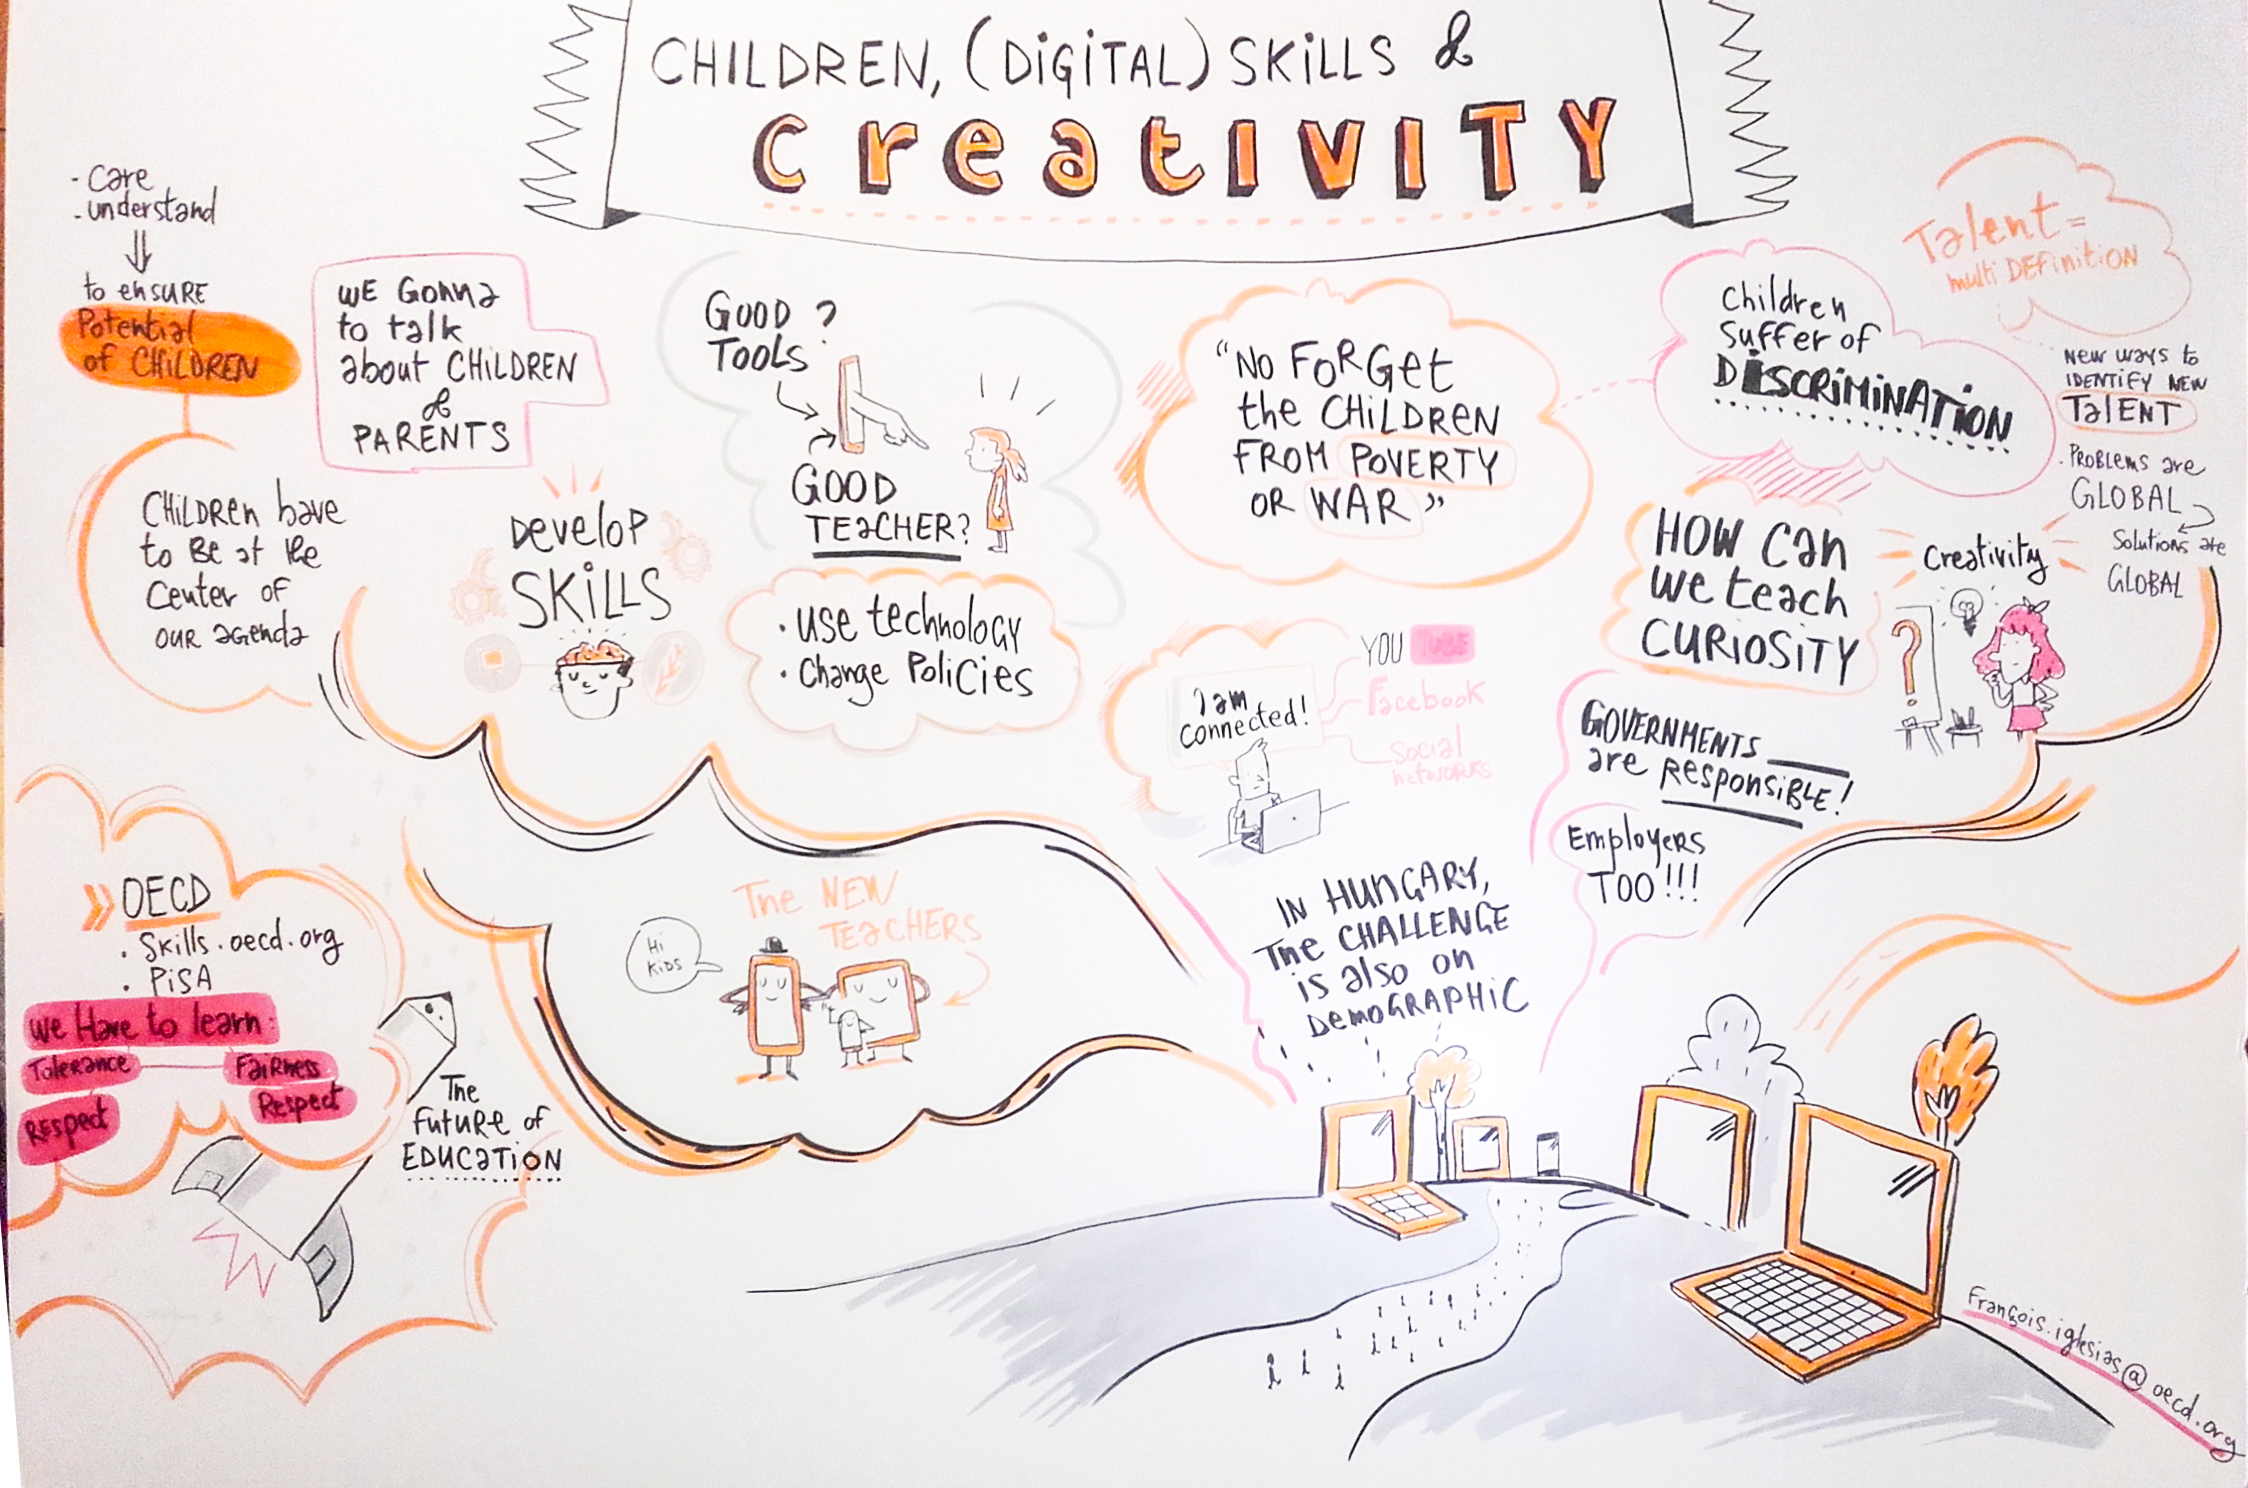 CHILDREN, (DiGiTAL) SKiLLS &
CreatIVITY
- Care
- understand
to ensURE
Potential
of CHiLDREN
CHiLDREn have
to Be at the
Center of
our agenda
WE Gonna
to talk
about CHiLDREN
&
PARENTS
Develop
SKiLLS
GOOD ?
TOOLS
GOOD
TEaCHER?
• USE technoloGY
• Change PoLiCiES
“NO FoRGet
the CHiLDREN
FROM POVERTY
OR WAR”
Children
Suffer of
DiSCRiMiNATiON
Talent =
multi DEFinitiON
NEW WAYS to
IDENTiFY NEW
TaLENT
. PROBLEMS are
GLOBAL
Solutions are
GLOBAL
HOW Can
We teach
CURiOSiTY
Creativity
?
YOU TUBE
Facebook
Social
networks
I am
connected!
GOVERNMENTS
are Responsible!
Employers
TOO!!!
IN HUnGARY,
The CHALLENGE
is also on
DemoGRAPHiC
The NEW
TEaCHERS
Hi
KiDS
» OECD
• Skills.oecd.org
• PiSA
We Have to learn:
Tolerance
Fairness
Respect
Respect
The
FutuRE of
EDUCaTiON
François.iglesias@oecd.org